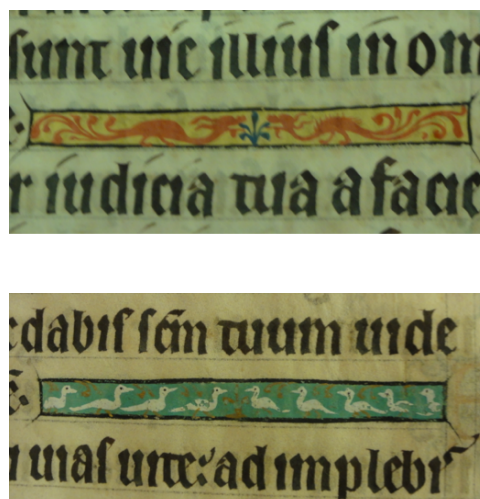 ſunt uie illiuſ in om
r iudicia tua a facie
dabiſ ſcm̄ tuum uide
uiaſ uite: ad implebi